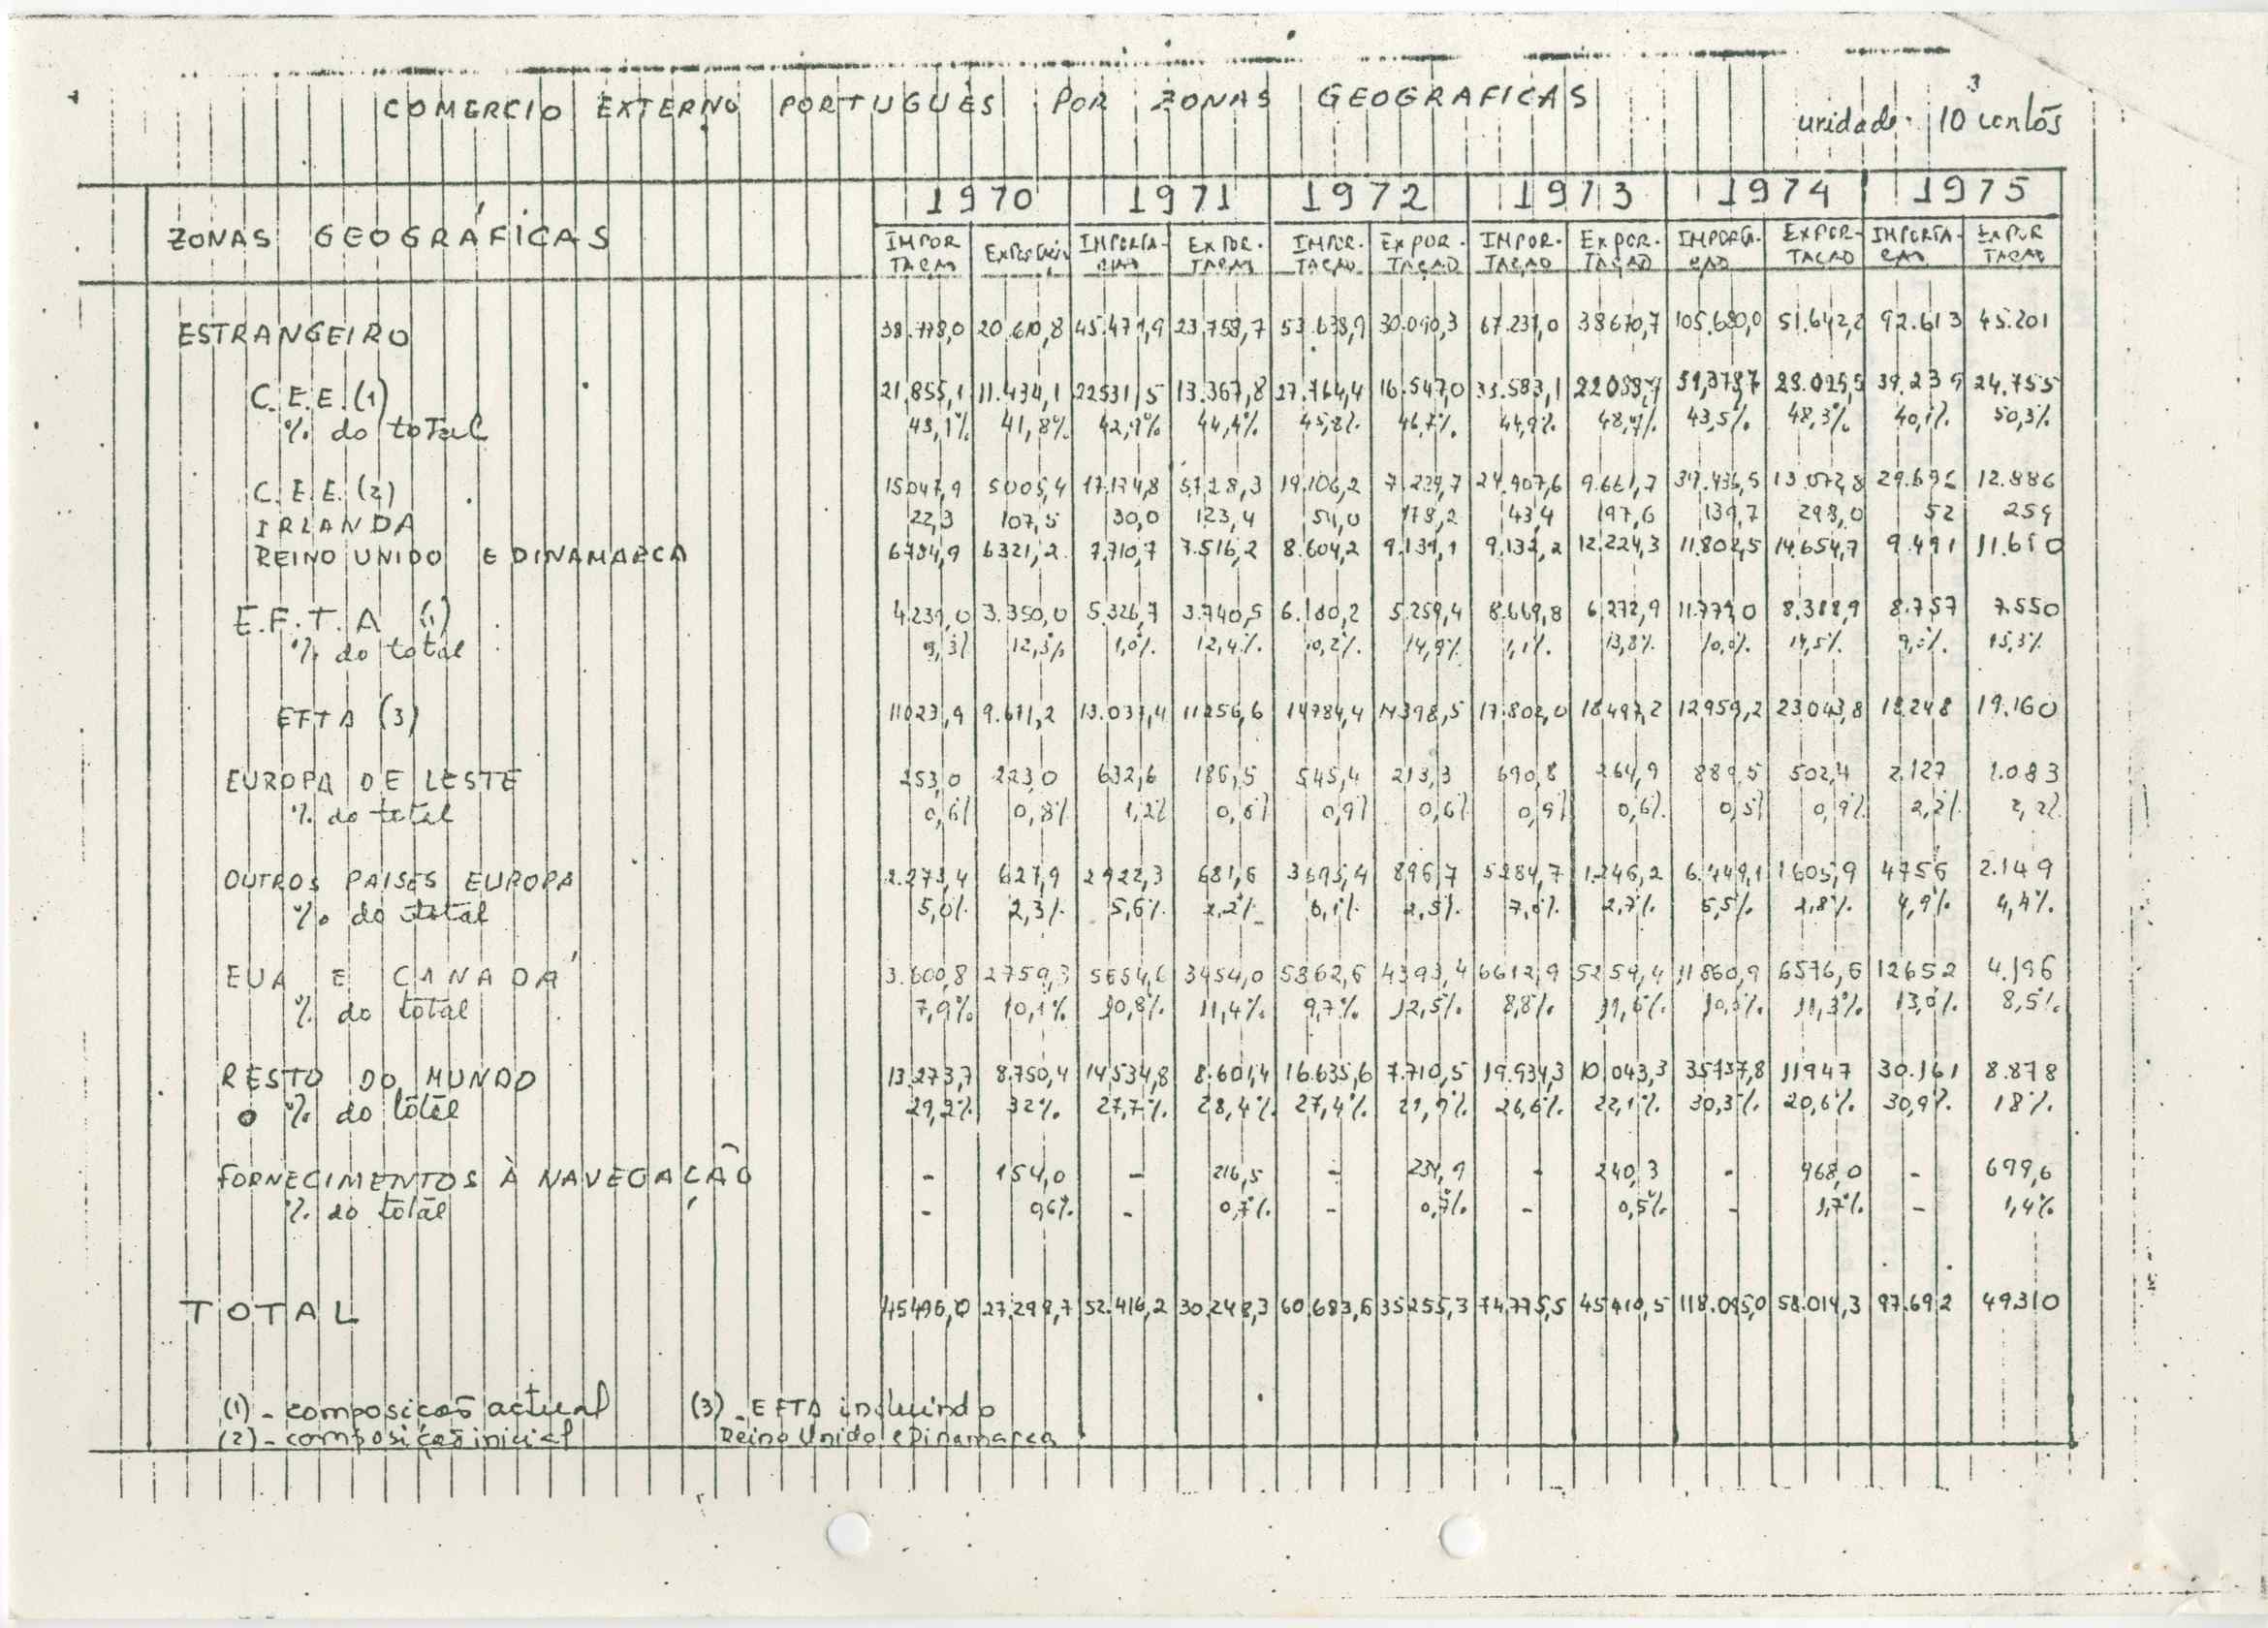 COMERCIO EXTERNO PORTUGUÊS POR ZONAS GEOGRAFICAS
unidade: 10³ contos
1970 1971 1972 1973 1974 1975
ZONAS GEOGRÁFICAS
IMPORTAÇÃO EXPORTAÇÃO IMPORTAÇÃO EXPORTAÇÃO IMPORTAÇÃO EXPORTAÇÃO IMPORTAÇÃO EXPORTAÇÃO IMPORTAÇÃO EXPORTAÇÃO IMPORTAÇÃO EXPORTAÇÃO
ESTRANGEIRO 20.610,8 45.471,9 53.638,9 30.090,3 67.231,0 38670,7 105.680,0 51.642,2 92.613 45.201
C.E.E. (1) 21.855,1 11.434,1 22531,5 13.367,8 27.764,4 16.547,0 33.583,1 24.755
% do total 41,8% 42,9% 44,4% 45,8% 46,7% 44,9% 43,5% 48,3% 40,1% 50,3%
C.E.E. (2) 15047,9 5005,4 19.106,2 24.907,6 9.661,7 12.886
IRLANDA 22,3 107,5 30,0 123,4 54,0 178,2 43,4 197,6 139,7 298,0 52 259
REINO UNIDO E DINAMARCA 6784,9 6321,2 7.516,2 8.604,2 9.132,2 12.224,3 11.802,5 14.654,7 9.491 11.610
E.F.T.A (1) 4.239,0 3.350,0 5.326,7 3.740,5 6.180,2 5.259,4 8.669,8 6.272,9 8.388,9 8.757 7.550
% do total 9,3% 12,3% 12,4% 14,9% 13,8% 14,5% 15,3%
EFTA (3) 11023,9 9.671,2 13.037,4 11256,6 14784,4 14398,5 17.802,0 18497,2 12959,2 23043,8 18.248 19.160
EUROPA DE LESTE 253,0 223,0 632,6 186,5 545,4 213,3 690,8 264,9 889,5 502,4 2.127 1.083
% do total 0,6% 0,8% 1,2% 0,6% 0,9% 0,6% 0,9% 0,6% 0,9% 2,2% 2,2%
OUTROS PAISES EUROPA 2.273,4 627,9 2922,3 681,6 3695,4 896,7 5284,7 1.246,2 6.449,1 1605,9 4756 2.149
% do total 5,0% 2,3% 5,6% 2,2% 6,1% 2,5% 2,7% 5,5% 2,8% 4,9% 4,4%
EUA E CANADÁ 3.600,8 2759,3 5654,6 3454,0 5862,6 4393,4 6612,9 5259,4 11860,9 6576,6 12652 4.196
% do total 7,9% 10,1% 10,8% 11,4% 9,7% 12,5% 8,8% 11,6% 11,3% 13,0% 8,5%
RESTO DO MUNDO 13.273,7 8.750,4 14534,8 8.601,4 16.635,6 7.710,5 19.934,3 10.043,3 35737,8 11947 30.161 8.878
% do total 29,2% 32% 27,7% 28,4% 27,4% 21,9% 26,6% 22,1% 30,3% 20,6% 30,9% 18%
FORNECIMENTOS À NAVEGAÇÃO - 154,0 - 216,5 - 234,9 - 240,3 - 968,0 - 699,6
% do total - 0,6% - 0,7% - 0,7% - 0,5% - 1,7% - 1,4%
TOTAL 45496,0 27.298,7 52.416,2 30.248,3 60.683,6 35255,3 74.775,5 45410,5 118.095,0 58.014,3 97.692 49310
(1) - composição actual (3) - EFTA incluindo
(2) - composição inicial Reino Unido e Dinamarca